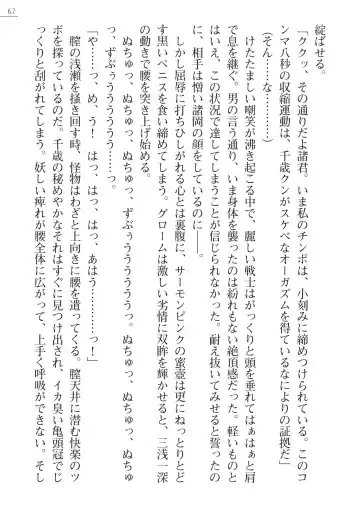 67
綻ばせる。
「ククッ、その通りだよ諸君。いま私のチンポは、小刻みに締めつけられている。このコ
ンマ八秒の収縮運動は、千歳クンがスケベなオーガズムを得ているなによりの証拠だ」
(そん……な……………)
けたたましい嘲笑が沸き起こる中で、麗しい戦士はがっくりと頭を垂れてはぁはぁと肩
で息を継ぐ。男の言う通り、いま身体を襲ったのは紛れもない絶頂感だった。軽いものと
はいえ、この状況で達してしまうことが信じられなかった。耐え抜いてみせると誓ったの
に、相手は憎い諸岡の顔をしているのに――。
しかし屈辱に打ちひしがれる心とは裏腹に、サーモンピンクの蜜壺は更にねっとりとど
す黒いペニスを食い締めてしまう。グロームは激しい劣情に双眸を輝かせると、三浅一深
の動きで腰を突き上げ始める。
ぬちゅっ、ぬちゅっ、ずぶぅうううううっ。ぬちゅっ、ぬちゅっ、ずぶぅうううううっ。ぬちゅっ、ぬちゅ
っ、ずぶぅうううううーーっ。
「や……っ、め、う！　はっ、はっ、あはう――……っ！」
膣の浅瀬を掻き回す時、怪物はわざと上向きに腰を使ってきた。膣天井に潜む快楽のツ
ボを探っているのだ。千歳の秘めやかなそれはすぐに見つけ出され、イカ臭い亀頭冠でじ
っくりと刮がれてしまう。妖しい痺れが腰全体に広がって、上手く呼吸ができない。そし